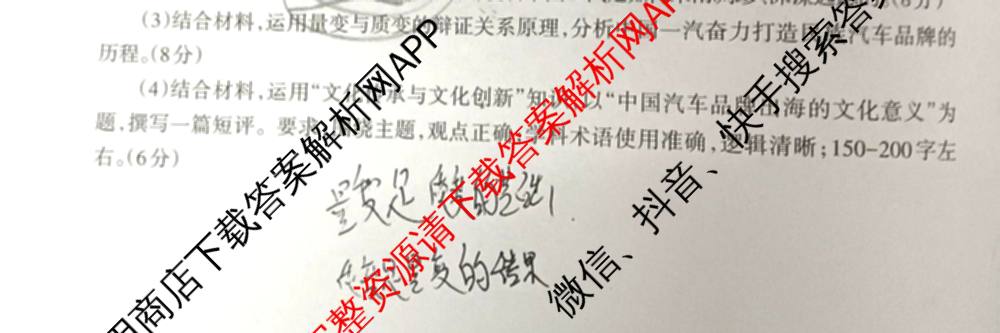 (3)结合材料,运用量变与质变的辩证关系原理,分析中国一汽奋力打造民族汽车品牌的
历程。(8分)
(4)结合材料,运用“文化传承与文化创新”知识,以“中国汽车品牌出海的文化意义”为
题,撰写一篇短评。要求:围绕主题,观点正确;学科术语使用准确,逻辑清晰;150-200字左
右。(6分)
量变是质变的
质变是量变的结果
用商店下载答案解析网APP
完整资源请下载答案解析网APP
微信、抖音、快手搜索答